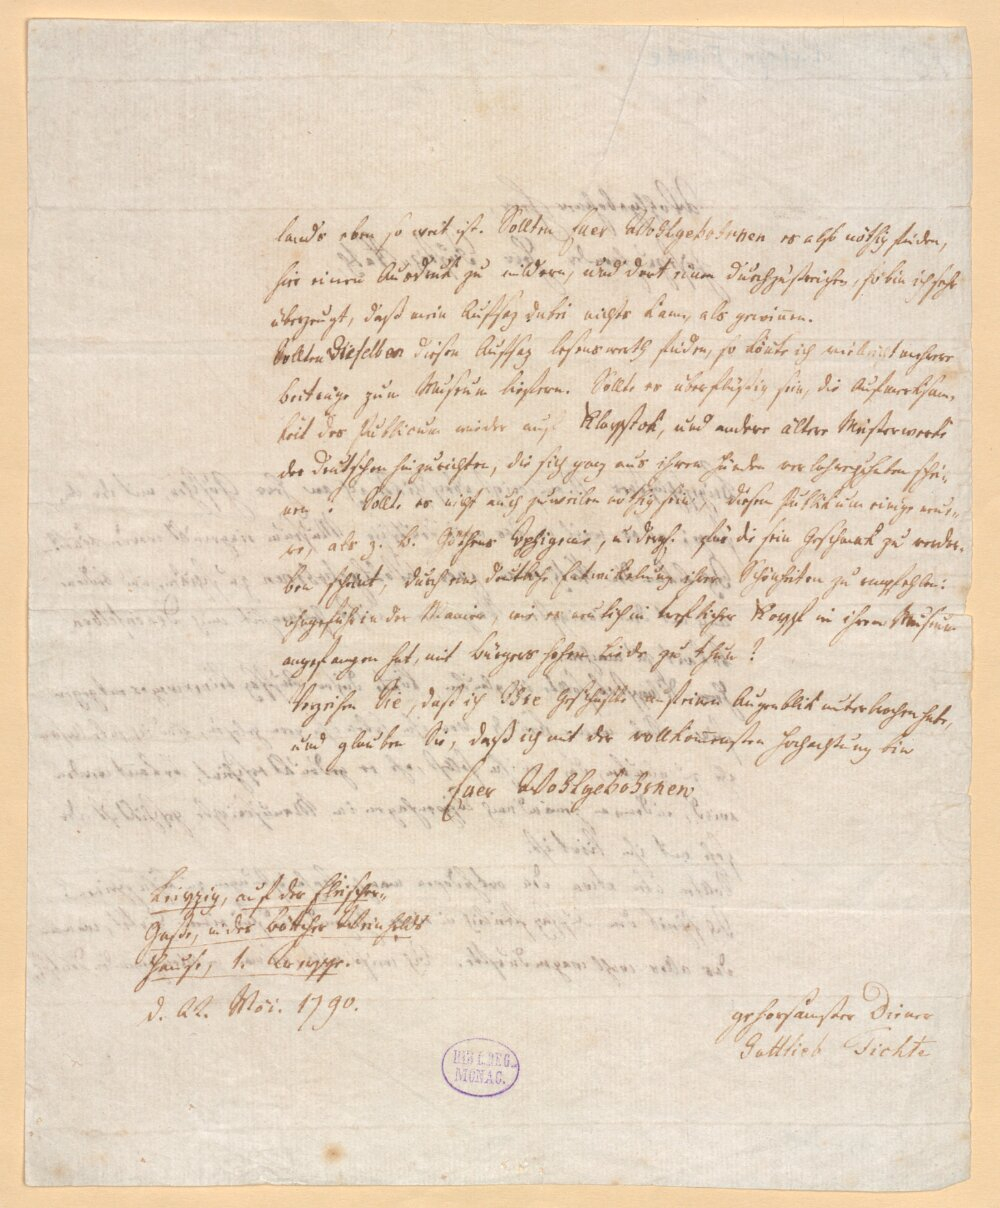 lands eben so weit ist. Sollten Euer Wohlgebohrnen es also nöthig finden,
hie einen Ausdruk zu mildern, und dort einen durchzustreichen, so bin ich sehr
überzeugt, daß mein Aufsaz dabei nichts kann, als gewinnen.
Sollten Dieselben diesen Aufsaz lesenswerth finden, so könte ich vielleicht mehrere
Beiträge zum Museum liefern. Sollte es überflüßig sein, die Aufmerksam-
keit des Publicum wieder auf Klopstok, und andere ältere Meisterwerke
der Deutschen hinzurichten, die sich ganz aus ihren Händen verlohren zu haben schei-
nen? Sollte es nicht auch zuweilen nöthig sein, diesem Publikum einige neue-
re, als z. B. Göthens Iphigenie, u. dergl. für die sein Geschmak zu verdor-
ben scheint, durch eine deutliche Entwikelung ihrer Schönheiten zu empfehlen:
ohngefähr in der Manier, wie es neulich ein treflicher Kopf in ihrem Museum
angefangen hat, mit Bürgers hohem Liede zu thun?
Verzeihen Sie, daß ich Ihre Geschäfte auf einen Augenblik unterbrochen habe,
und glauben Sie, daß ich mit der vollkommensten Hochachtung bin
Euer Wohlgebohrnen
Leipzig, auf der Fleischer-
Gaße, in des Böttcher Weinholds
Hause, 1. Treppe.
d. 22. Mai. 1790.
gehorsamster Diener
Gottlieb Fichte
BIBL. REG.
MONAC.